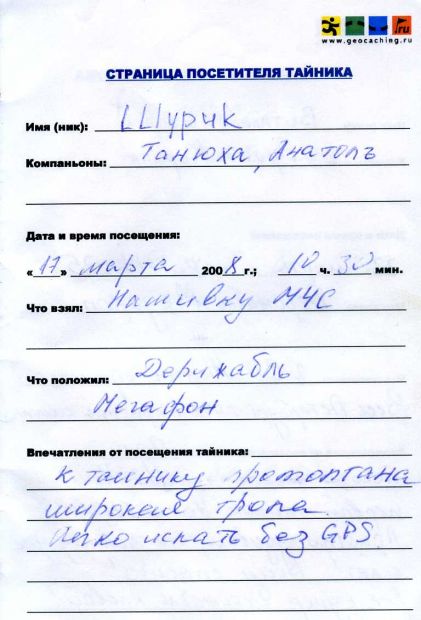 www.geocaching.ru
СТРАНИЦА ПОСЕТИТЕЛЯ ТАЙНИКА
Имя (ник): Шурик
Компаньоны: Танюха, Анатолъ
Дата и время посещения:
«17» марта 2008г.; 10 ч. 30 мин.
Что взял: Нашивку МЧС
Что положил: Дерижабль
Мегафон
Впечатления от посещения тайника:
К таинику протоптана
широкая тропа.
Легко искать без GPS